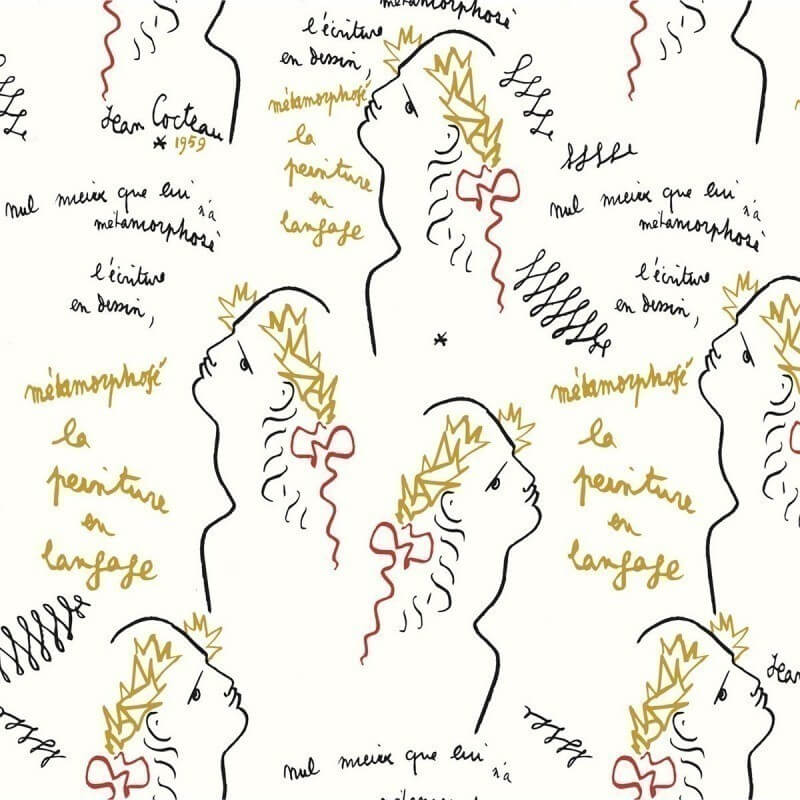 métamorphosé
l'écriture
en dessin,
métamorphosé
la
peinture
en
langage
Jean Cocteau
* 1959
nul mieux que lui
n'a
métamorphosé
l'écriture
en dessin,
métamorphosé
la
peinture
en
langage
nul mieux que lui
n'a
métamorphosé
l'écriture
en dessin,
métamorphosé
la
peinture
en
langage
Jean
nul mieux que lui
n'a
métamorphosé